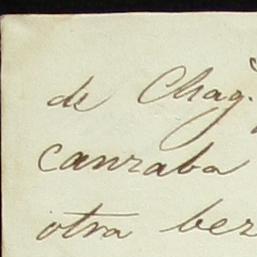 de Chag.
canzaba
otra bez